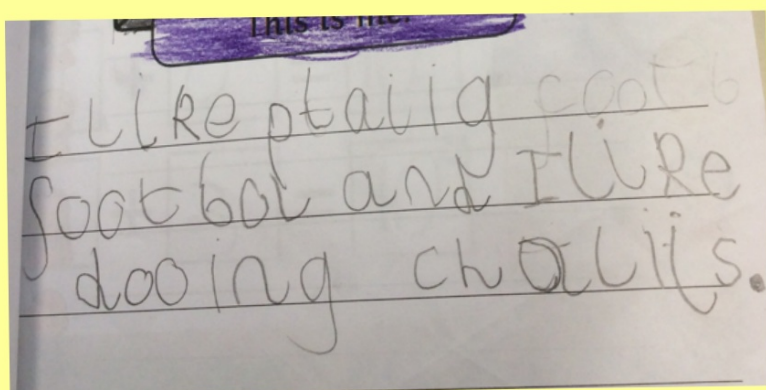 This is me.
I like ptaiig
footbol and I like
dooing chaliis.